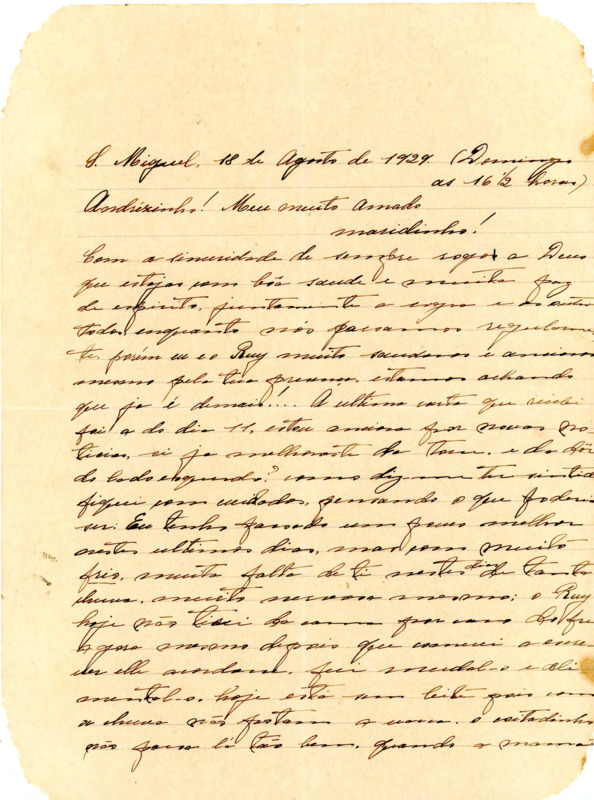 S. Miguel, 18 de Agosto de 1929. (Domingo
as 16 1/2 horas)
Andrezinho! Meu muito Amado
maridinho!
Com a sinceridade de sempre rogo a Deus
que estejas com bôa saude e muita paz
de espirito, juntamente a sogra e os outros
todos, enquanto nós passamos regularmen
te, porém eu e o Ruy muito saudosos e anciosos
mesmo pela tua presença, estamos achando
que ja é demais!... A ultima carta que recebi
foi a do dia 11, estou anciosa por novas no
ticias, si ja melhoraste da tosse, e da dôr
do lado esquerdo? como diz me ter sentido
fiquei com cuidados, pensando o que poderia
ser. Eu tenho passado um pouco melhor
nestes ultimos dias, mas com muito
frio, muita falta de ti nestes dias de tanta
chuva, muito nervosa mesmo; o Ruy
hoje não tirei da cama por causa do frio
agora mesmo depois que comecei a escre
ver elle acordou, fui mudal-o e ali
mental-o, hoje está sem leite pois com
a chuva não a vacca, o coitadinho
não passa lá tão bem, quando a mamãe